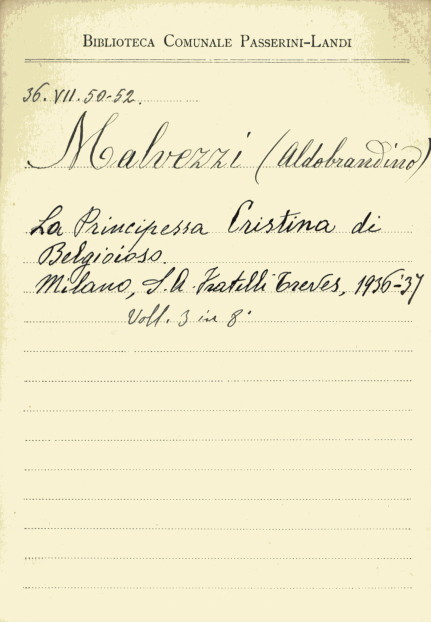 BIBLIOTECA COMUNALE PASSERINI-LANDI
36. VII. 50-52.
Malvezzi (Aldobrandino)
La Principessa Cristina di
Belgioioso.
Milano, S. A. Fratelli Treves, 1936-37
Voll. 3 in 8°